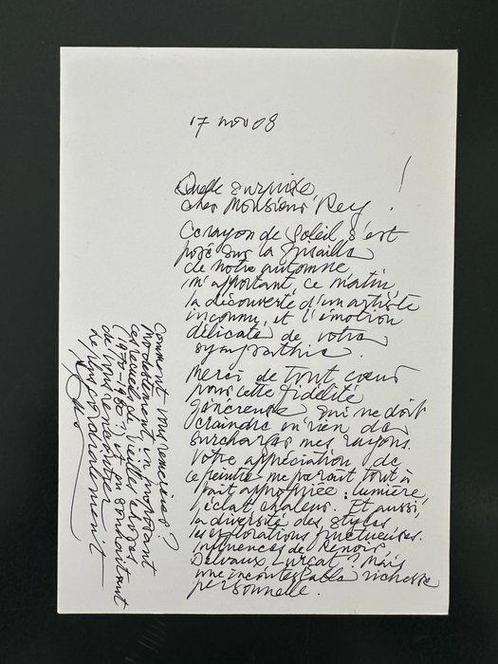 17 nov 08
Quelle surprise,
cher Monsieur Rey !
Ce rayon de soleil s'est
posé sur la grisaille
de notre automne
m'apportant, ce matin,
la découverte d'un artiste
inconnu, et l'émotion
délicate de votre
sympathie.
Merci de tout cœur
pour cette fidélité
généreuse qui ne doit
craindre en rien de
surcharger mes rayons.
Votre appréciation de
ce peintre me paraît tout à
fait appropriée : lumière,
éclat, chaleur. Et aussi,
la diversité des styles
les explorations fructueuses.
Influences de Renoir,
Delvaux, Lurçat ? Mais
une incontestable richesse
personnelle.
Comment vous remercier ?
Modestement en proposant
ces recueils de vieilles choses
(1970-1980 !) et en souhaitant
de vous rencontrer
cordialement